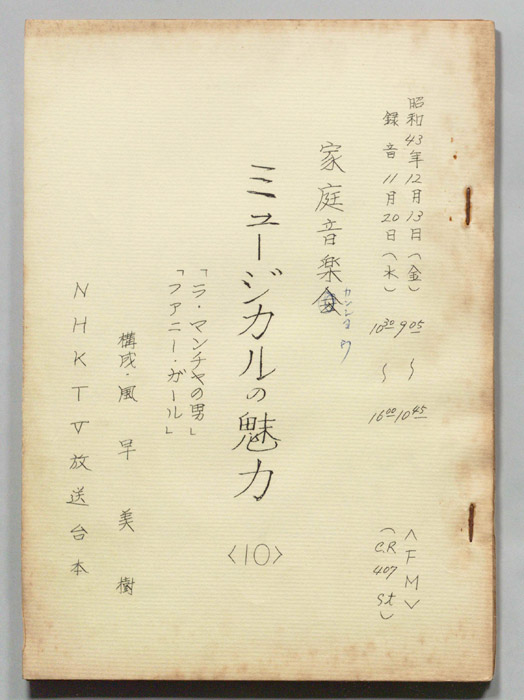 昭和43年12月13日(金) 9:05〜10:45 〈FM〉
録音 11月20日(水) 10:30〜16:00 (C.R 407 St)
家庭音楽会
ミュージカルの魅力〈10〉
「ラ・マンチャの男」
「ファニー・ガール」
構成・風早美樹
NHKTV放送台本